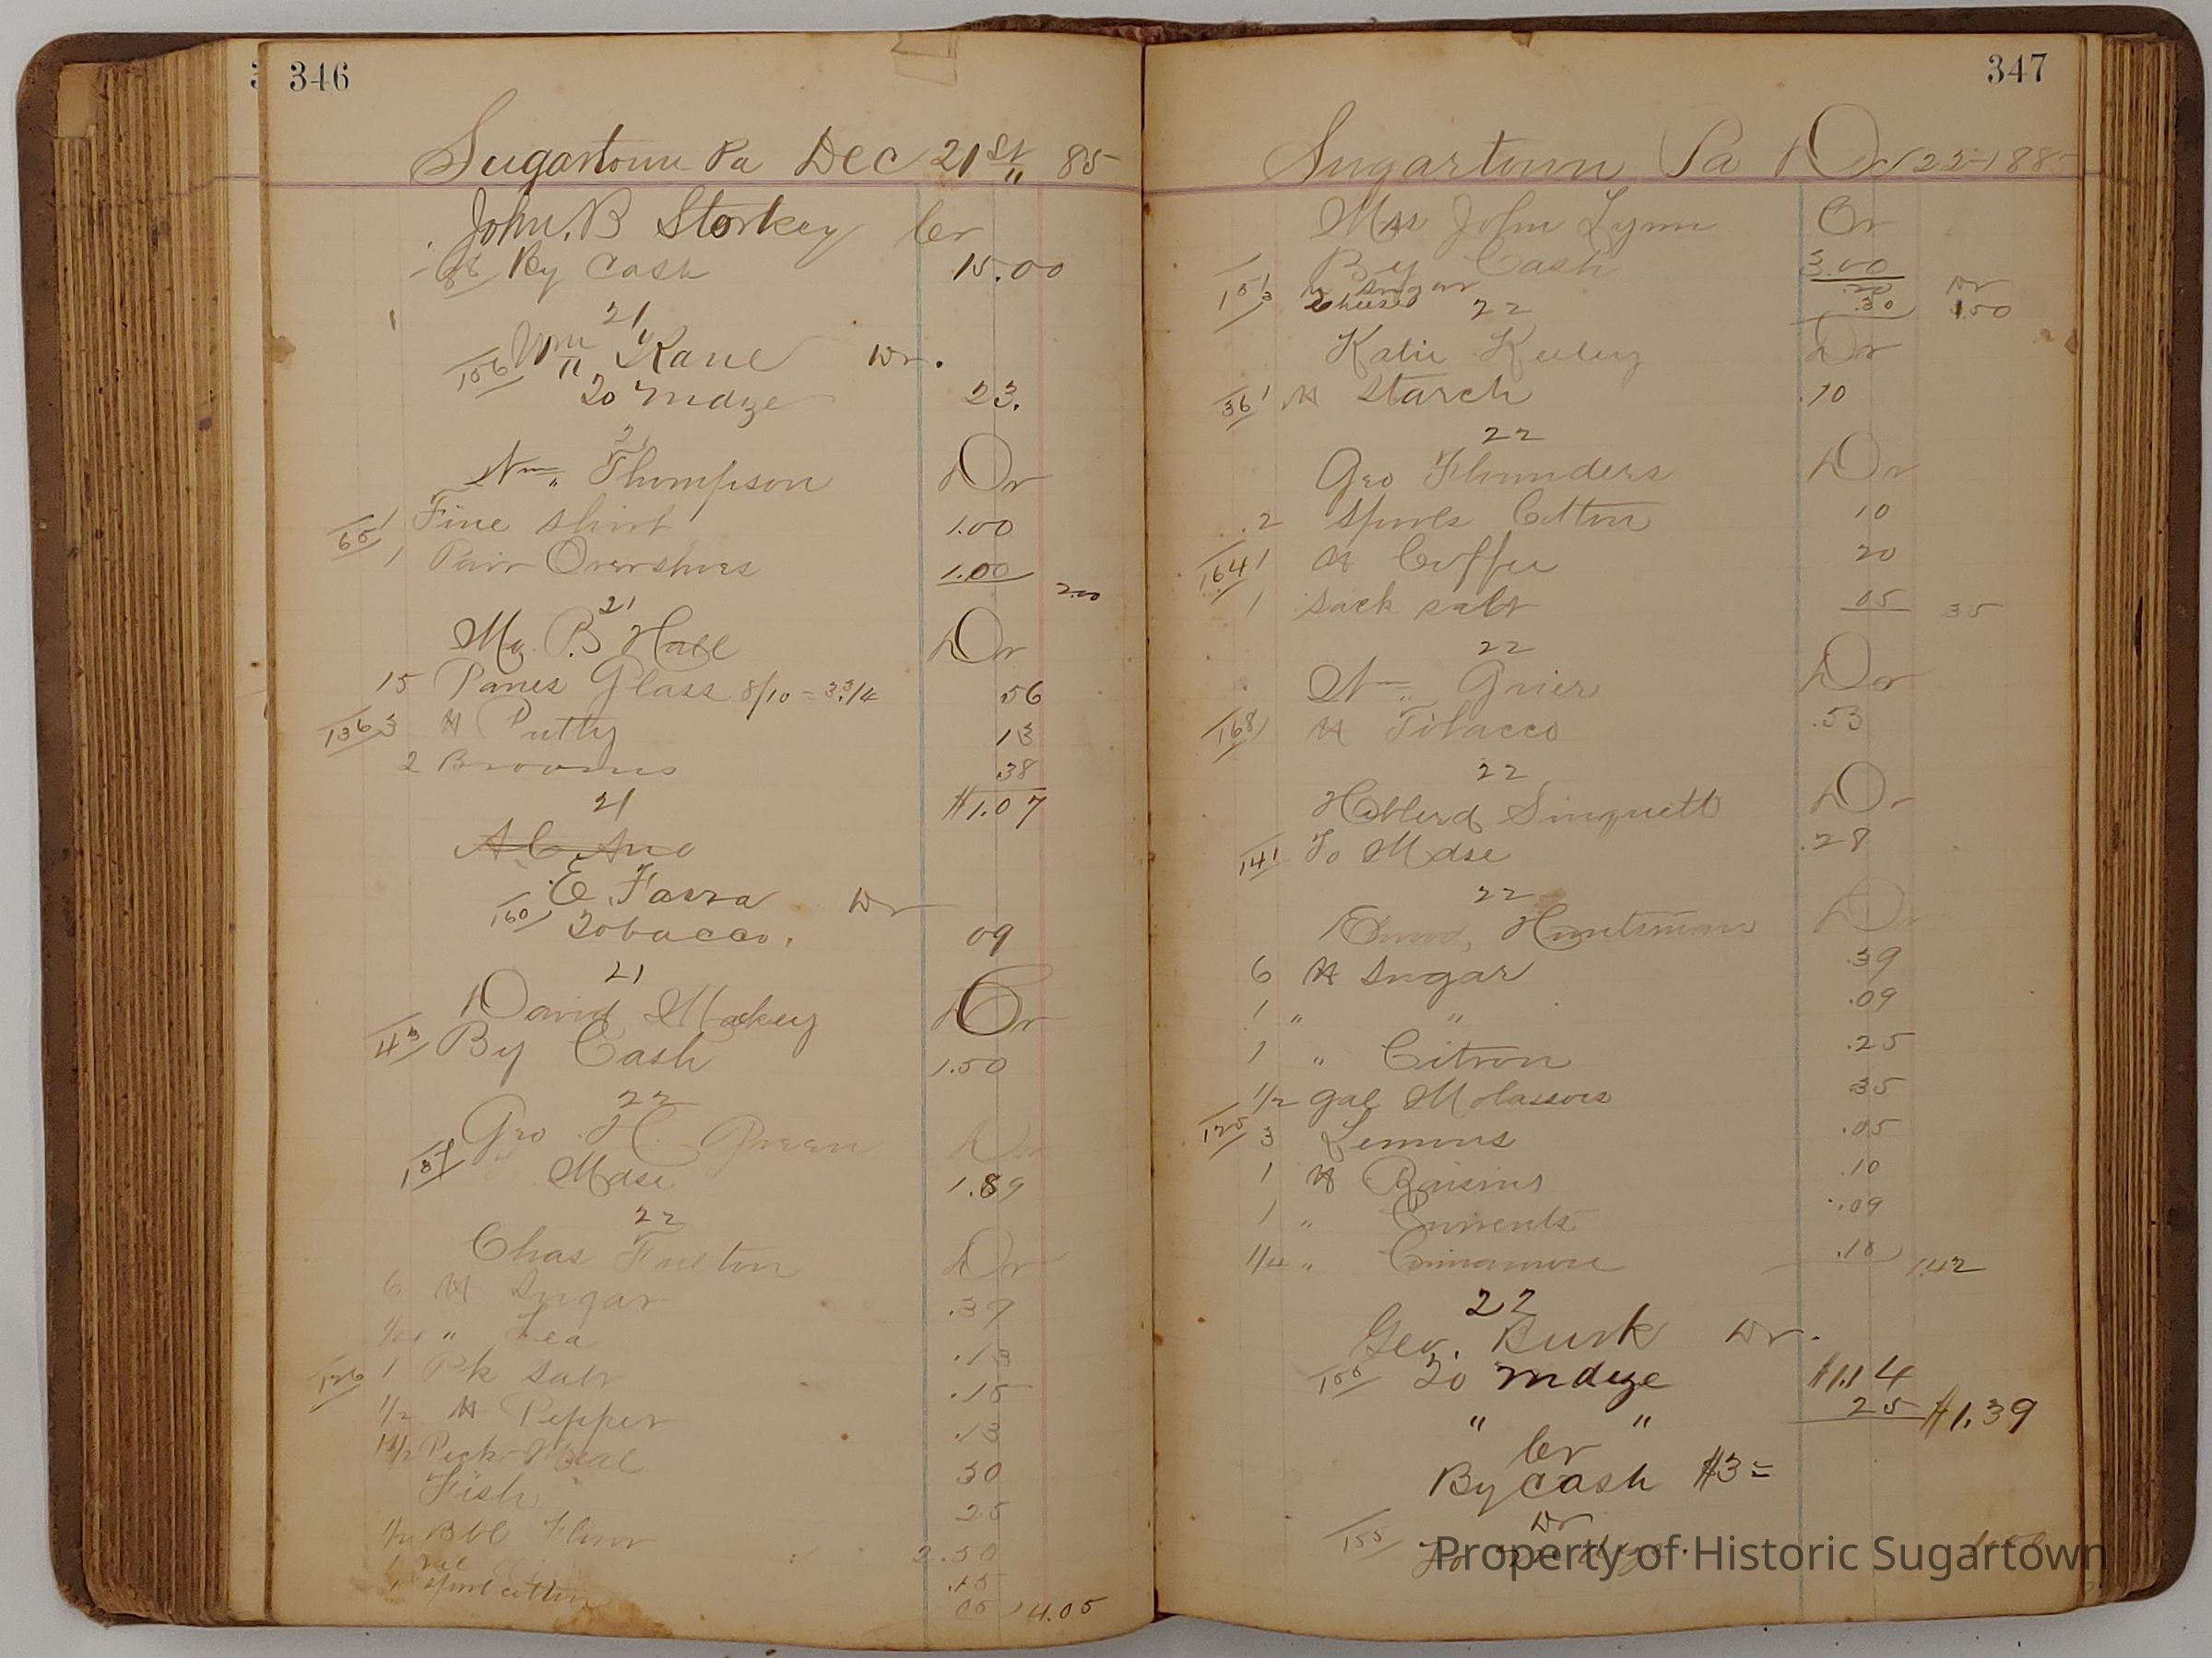 346
Sugartown Pa Dec 21st 85
John. B Storkey Cr
By Cash 15.00
21
156 Wm Kane Dr.
To Mdze 23.
21
Wm Thompson Dr
65 1 Fine Shirt 1.00
1 Pair Overshoes 1.00 2.00
21
B Hall Dr
15 Panes Glass 8/10 = 3 3/4 56
136 3 # Putty 13
2 Brooms 38
21 $1.07
E. Farra Dr
160 Tobacco. 09
21
David Mackey Cr
43 By Cash 1.50
22
Geo H. Green Dr
Mdse 1.89
22
Chas Fulton Dr
6 # Sugar .39
" Tea .13
126 1 Pk Salt .15
1/2 # Pepper .13
Peck Meal 30
Fish 25
Bbl Flour 2.50
1 .15
1 Spool cotton 05 4.05
347
Sugartown Pa Dec 22 1885
Mrs John Lynn Cr
By Cash 3.00
Sugar .20 Dr
Cheese .30 1.50
22
Katie Keeley Dr
36 1 # Starch .10
22
Geo Flounders Dr
2 Spools Cotton 10
164 1 # Coffee 20
1 Sack salt 05 35
22
Wm Grier Dr
168 # Tobacco .53
22
Singuett Dr
141 To Mdse .28
22
Huntsman Dr
6 # Sugar .39
1 " " .09
1 " Citron .25
1/2 gal Molasses 35
125 3 Lemons .05
1 # Raisins .10
1 " Currents .09
1/4 " Cinnamon .10 1.42
22
Geo. Burk Dr.
155 To Mdze $1.14
" " 25 $1.39
Cr
By Cash $3=
Dr
155 To
Property of Historic Sugartown